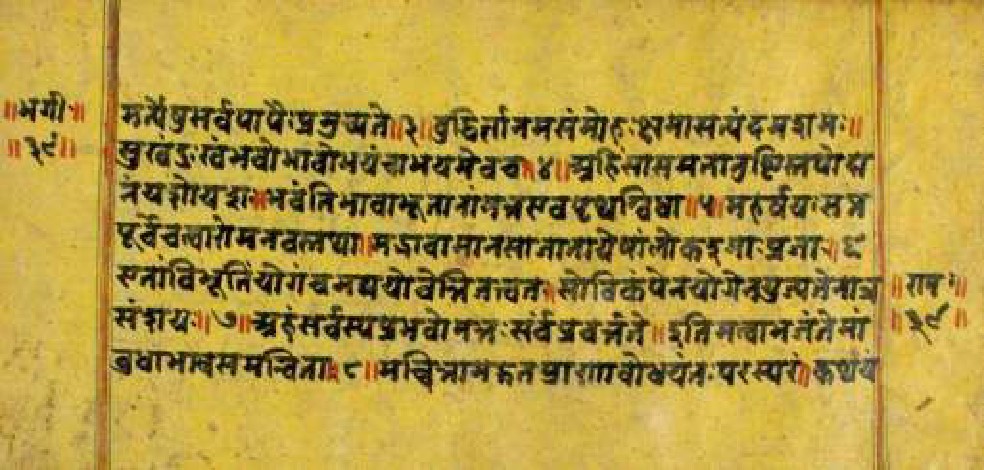 ॥भगी॥
॥३९॥
मर्त्येषुसर्वपापैःप्रमुच्यते॥३॥बुद्धिर्ज्ञानमसंमोहःक्षमासत्यंदमःशमः॥
सुखंदुःखंभवोभावोभयंचाभयमेवच॥४॥अहिंसासमतातुष्टिस्तपोदा
नंयशोयशः॥भवंतिभावाभूतानांमत्तएवपृथग्विधा॥५॥महर्षयःसप्त
पूर्वेचत्वारोमनवस्तथा॥मद्भावामानसाजातायेषांलोकइमाःप्रजाः॥६
एतांविभूतिंयोगंचममयोवेत्तितत्वतः॥सोविकंपेनयोगेनयुज्यतेनात्र
संशयः॥७॥अहंसर्वस्यप्रभवोमत्तःसर्वंप्रवर्त्तते॥इतिमत्वाभजंतेमां
बुधाभावसमन्विताः॥८॥मच्चित्तामद्गतप्राणाबोधयंतःपरस्परं॥कथयं
॥राम॥
॥३९॥